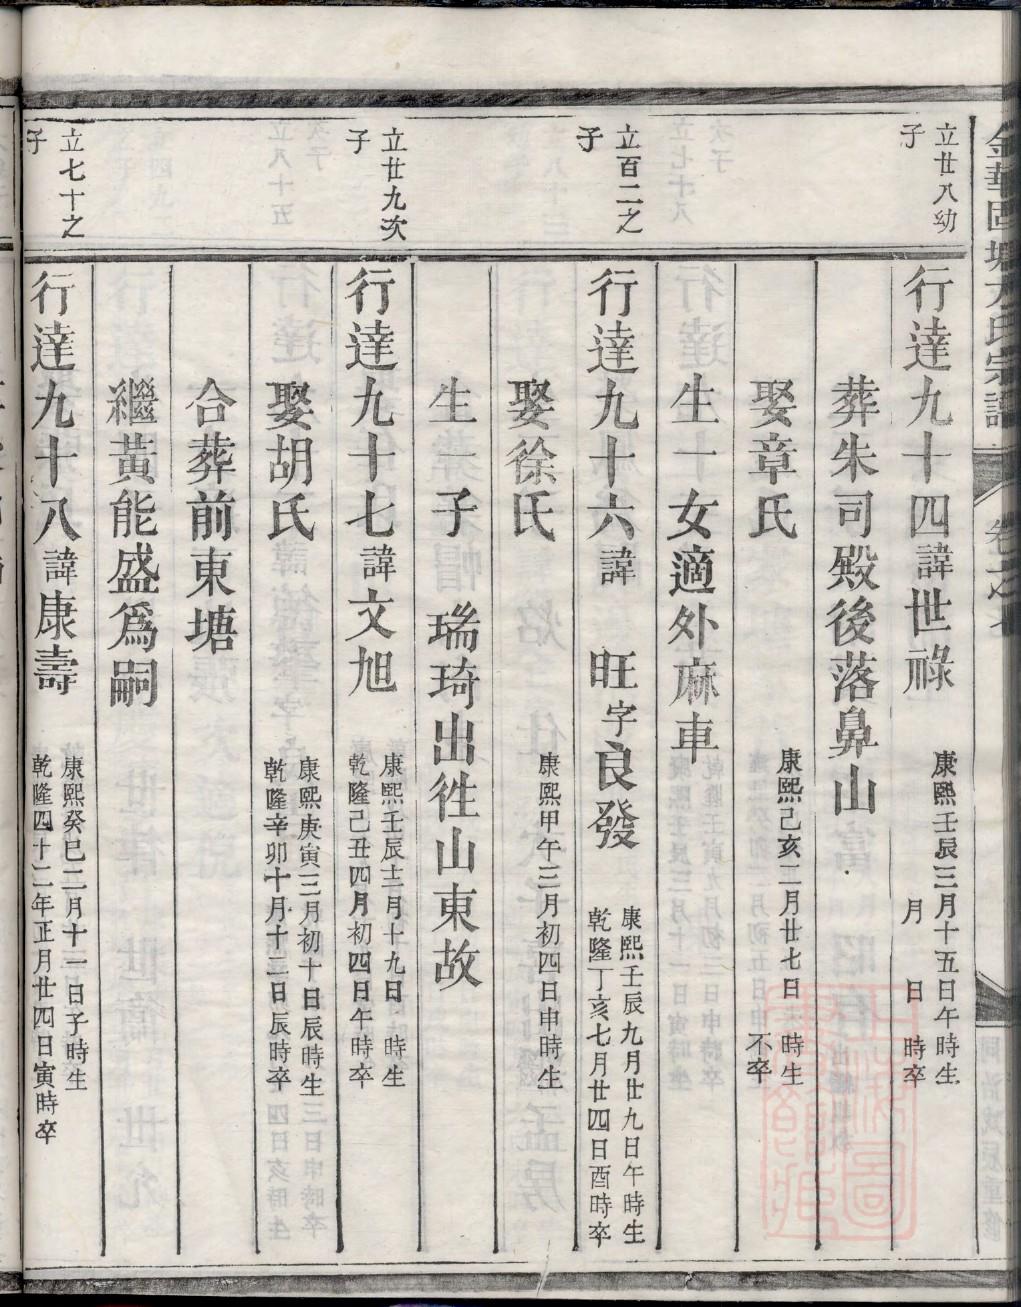 立廿八幼
子
行達九十四諱世祿
康熙壬辰三月十五日午時生
月　日　時卒
葬朱司殿後落鼻山
娶章氏
康熙己亥二月廿七日　時生
不卒
生一　女適外麻車
立百二之
子
行達九十六諱　旺字良發
康熙壬辰九月廿九日午時生
乾隆丁亥七月廿四日酉時卒
娶徐氏
康熙甲午三月初四日申時生
生　子　瑞琦出徃山東故
立廿九次
子
行達九十七諱文旭
康熙壬辰十二月十九日　時生
乾隆己丑四月初四日午時卒
娶胡氏
康熙庚寅三月初十日辰時生
乾隆辛卯十月十二日辰時卒
合葬前東塘
繼黃能盛爲嗣
立七十之
子
行達九十八諱康壽
康熙癸巳二月十一日子時生
乾隆四十二年正月廿四日寅時卒